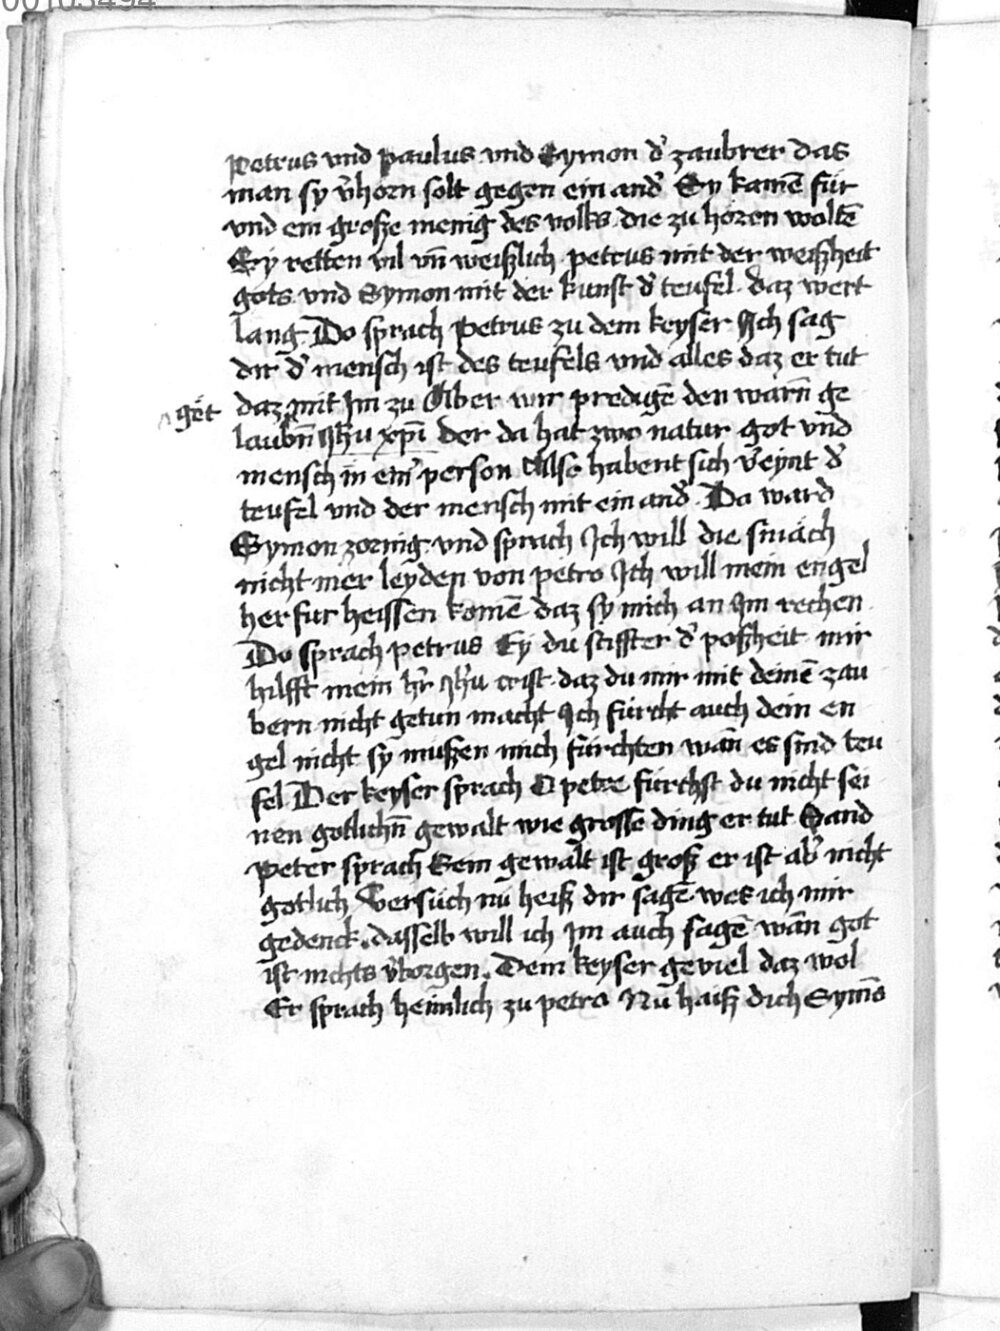 00103494
Petrus vnd paulus vnd Symon d' zaubrer das
man sy v̾horn solt gegen ein and' Sy kamē für
vnd ein große menig des volks die zu hören woltē
Sy retten vil vn̄ weißlich petrus mit der weißheit
gots vnd Symon mit der kunst d' teufel daz wert
lang Do sprach Petrus zu dem keyser Ich sag
dir d' mensch ist des teufels vnd alles daz er tut
gět daz mit Im zu Aber wir predigē den warn̄ ge
laubn̄ Ihū xpī Der da hat zwo natur got vnd
mensch in ein' person Also habent sich v̾eynt d'
teufel vnd der mensch mit ein and' Da ward
Symon zornig vnd sprach Ich will die smäch
nicht mer leyden von petro Ich will mein engel
herfur heissen komē daz sy mich an Im rechen
Do sprach petrus Ey du stiffter d' poßheit mir
hilfft mein hr̄ Ihū crist daz du mir mit deinē zau
bern nicht getun macht Ich fürcht auch dein en
gel nicht sy müßen mich fürchten wan̄ es sind teu
fel Der keyser sprach O petre fürchst du nicht sei
nen gotlichn̄ gewalt wie grosse ding er tut Sand
Peter sprach Sein gewalt ist groß er ist ab' nicht
gotlich Versuch nu heiß dir sagē wes ich mir
gedenck dasselb will ich Im auch sagē wan̄ got
ist nichts v̾borgen Dem keyser geviel daz wol
Er sprach heimlich zu petro Nu haiß dich Symō